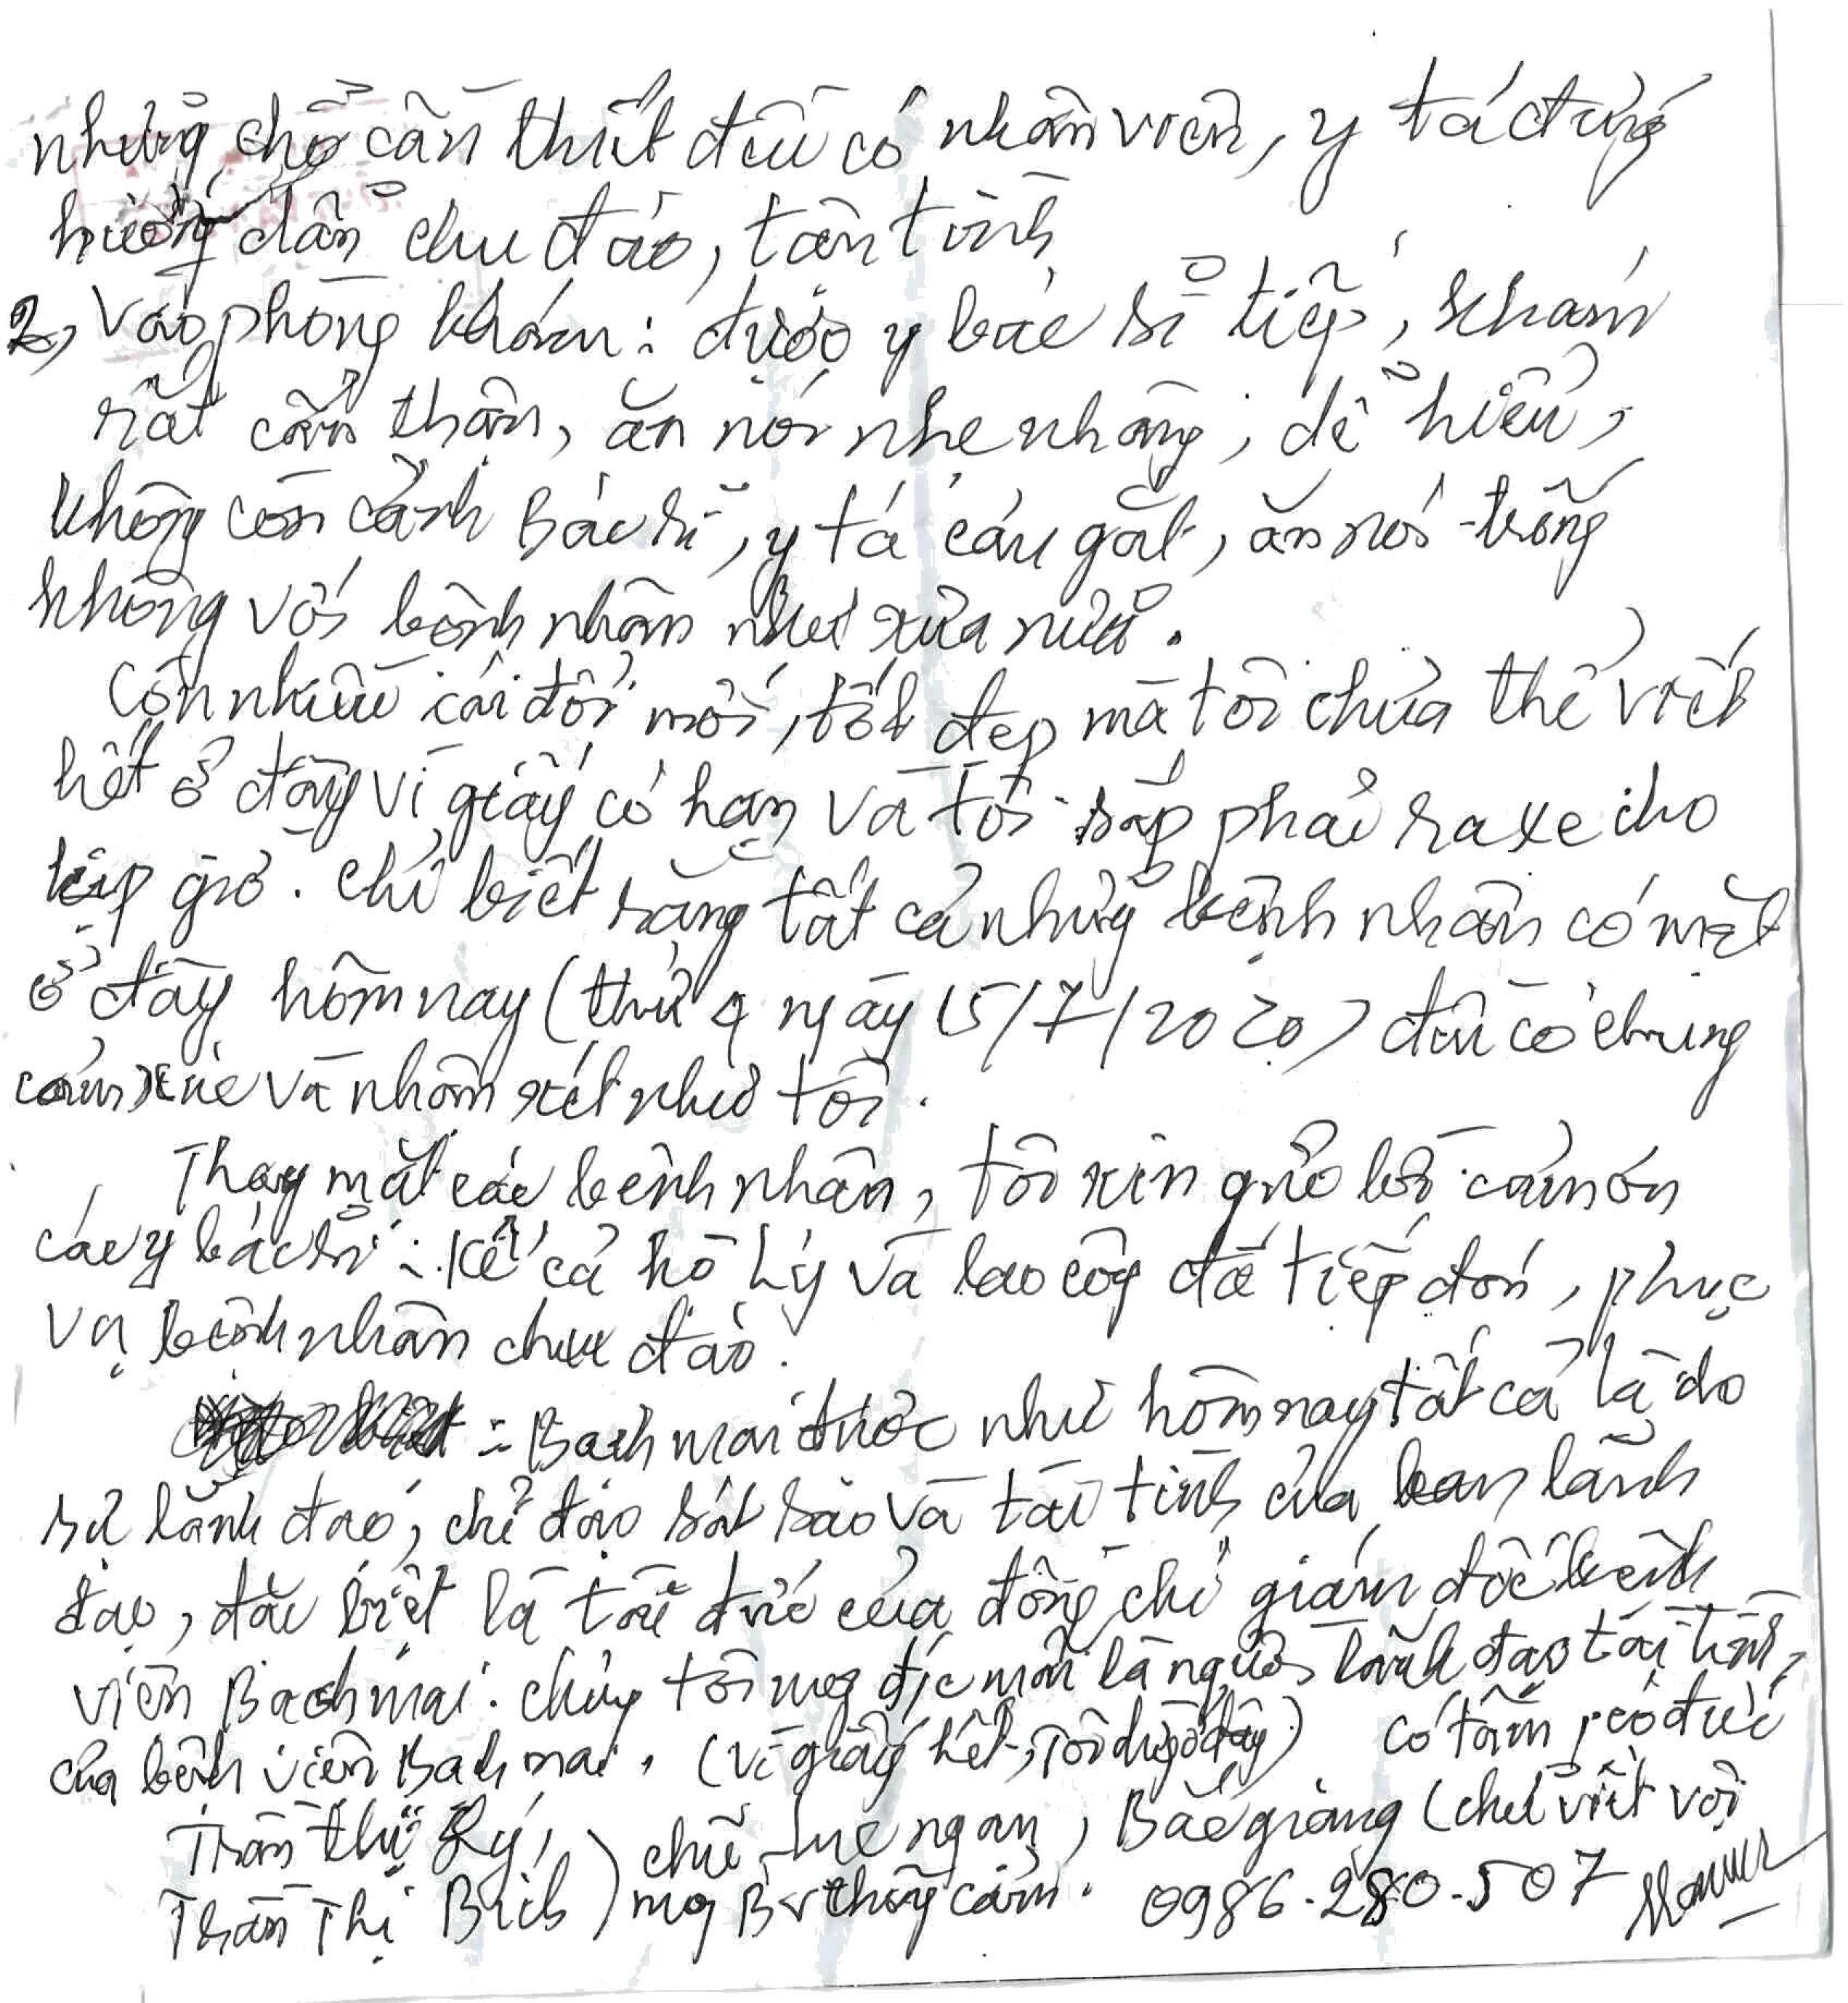 những chỗ cần thiết đều có nhân viên, y tá đứng
hướng dẫn chu đáo, tận tình
2, Vào phòng khám: được y bác sĩ tiếp, khám
rất cẩn thận, ăn nói nhẹ nhàng, dễ hiểu,
không còn cảnh Bác sĩ, y tá cáu gắt, ăn nói trống
không với bệnh nhân như xưa nữa.
Còn nhiều cái đổi mới, tốt đẹp mà tôi chưa thể viết
hết ở đây vì giấy có hạn và tôi sắp phải ra xe cho
kịp giờ. Chỉ biết rằng tất cả những bệnh nhân có mặt
ở đây hôm nay (thứ 4 ngày 15/7/2020) đều có chung
cảm xúc và nhận xét như tôi.
Thay mặt các bệnh nhân, tôi xin gửi lời cảm ơn
các y bác sĩ: kể cả hộ lý và lao công đã tiếp đón, phục
vụ bệnh nhân chu đáo.
= Bạch mai được như hôm nay tất cả là do
sự lãnh đạo, chỉ đạo sát sao và tài tình của ban lãnh
đạo, đặc biệt là tài đức của đồng chí giám đốc bệnh
viện Bạch mai. chúng tôi mong đ/c mãi là người lãnh đạo tài tình,
của bệnh viện Bạch mai. (vì giấy hết, Tôi dừng ở đây) có tâm, có đức
Trần thị Lý,
Thân Thị Bích) chũ - lục ngạn, Bắc giang (chữ viết vội
mong Bv thông cảm. 0986.280.507